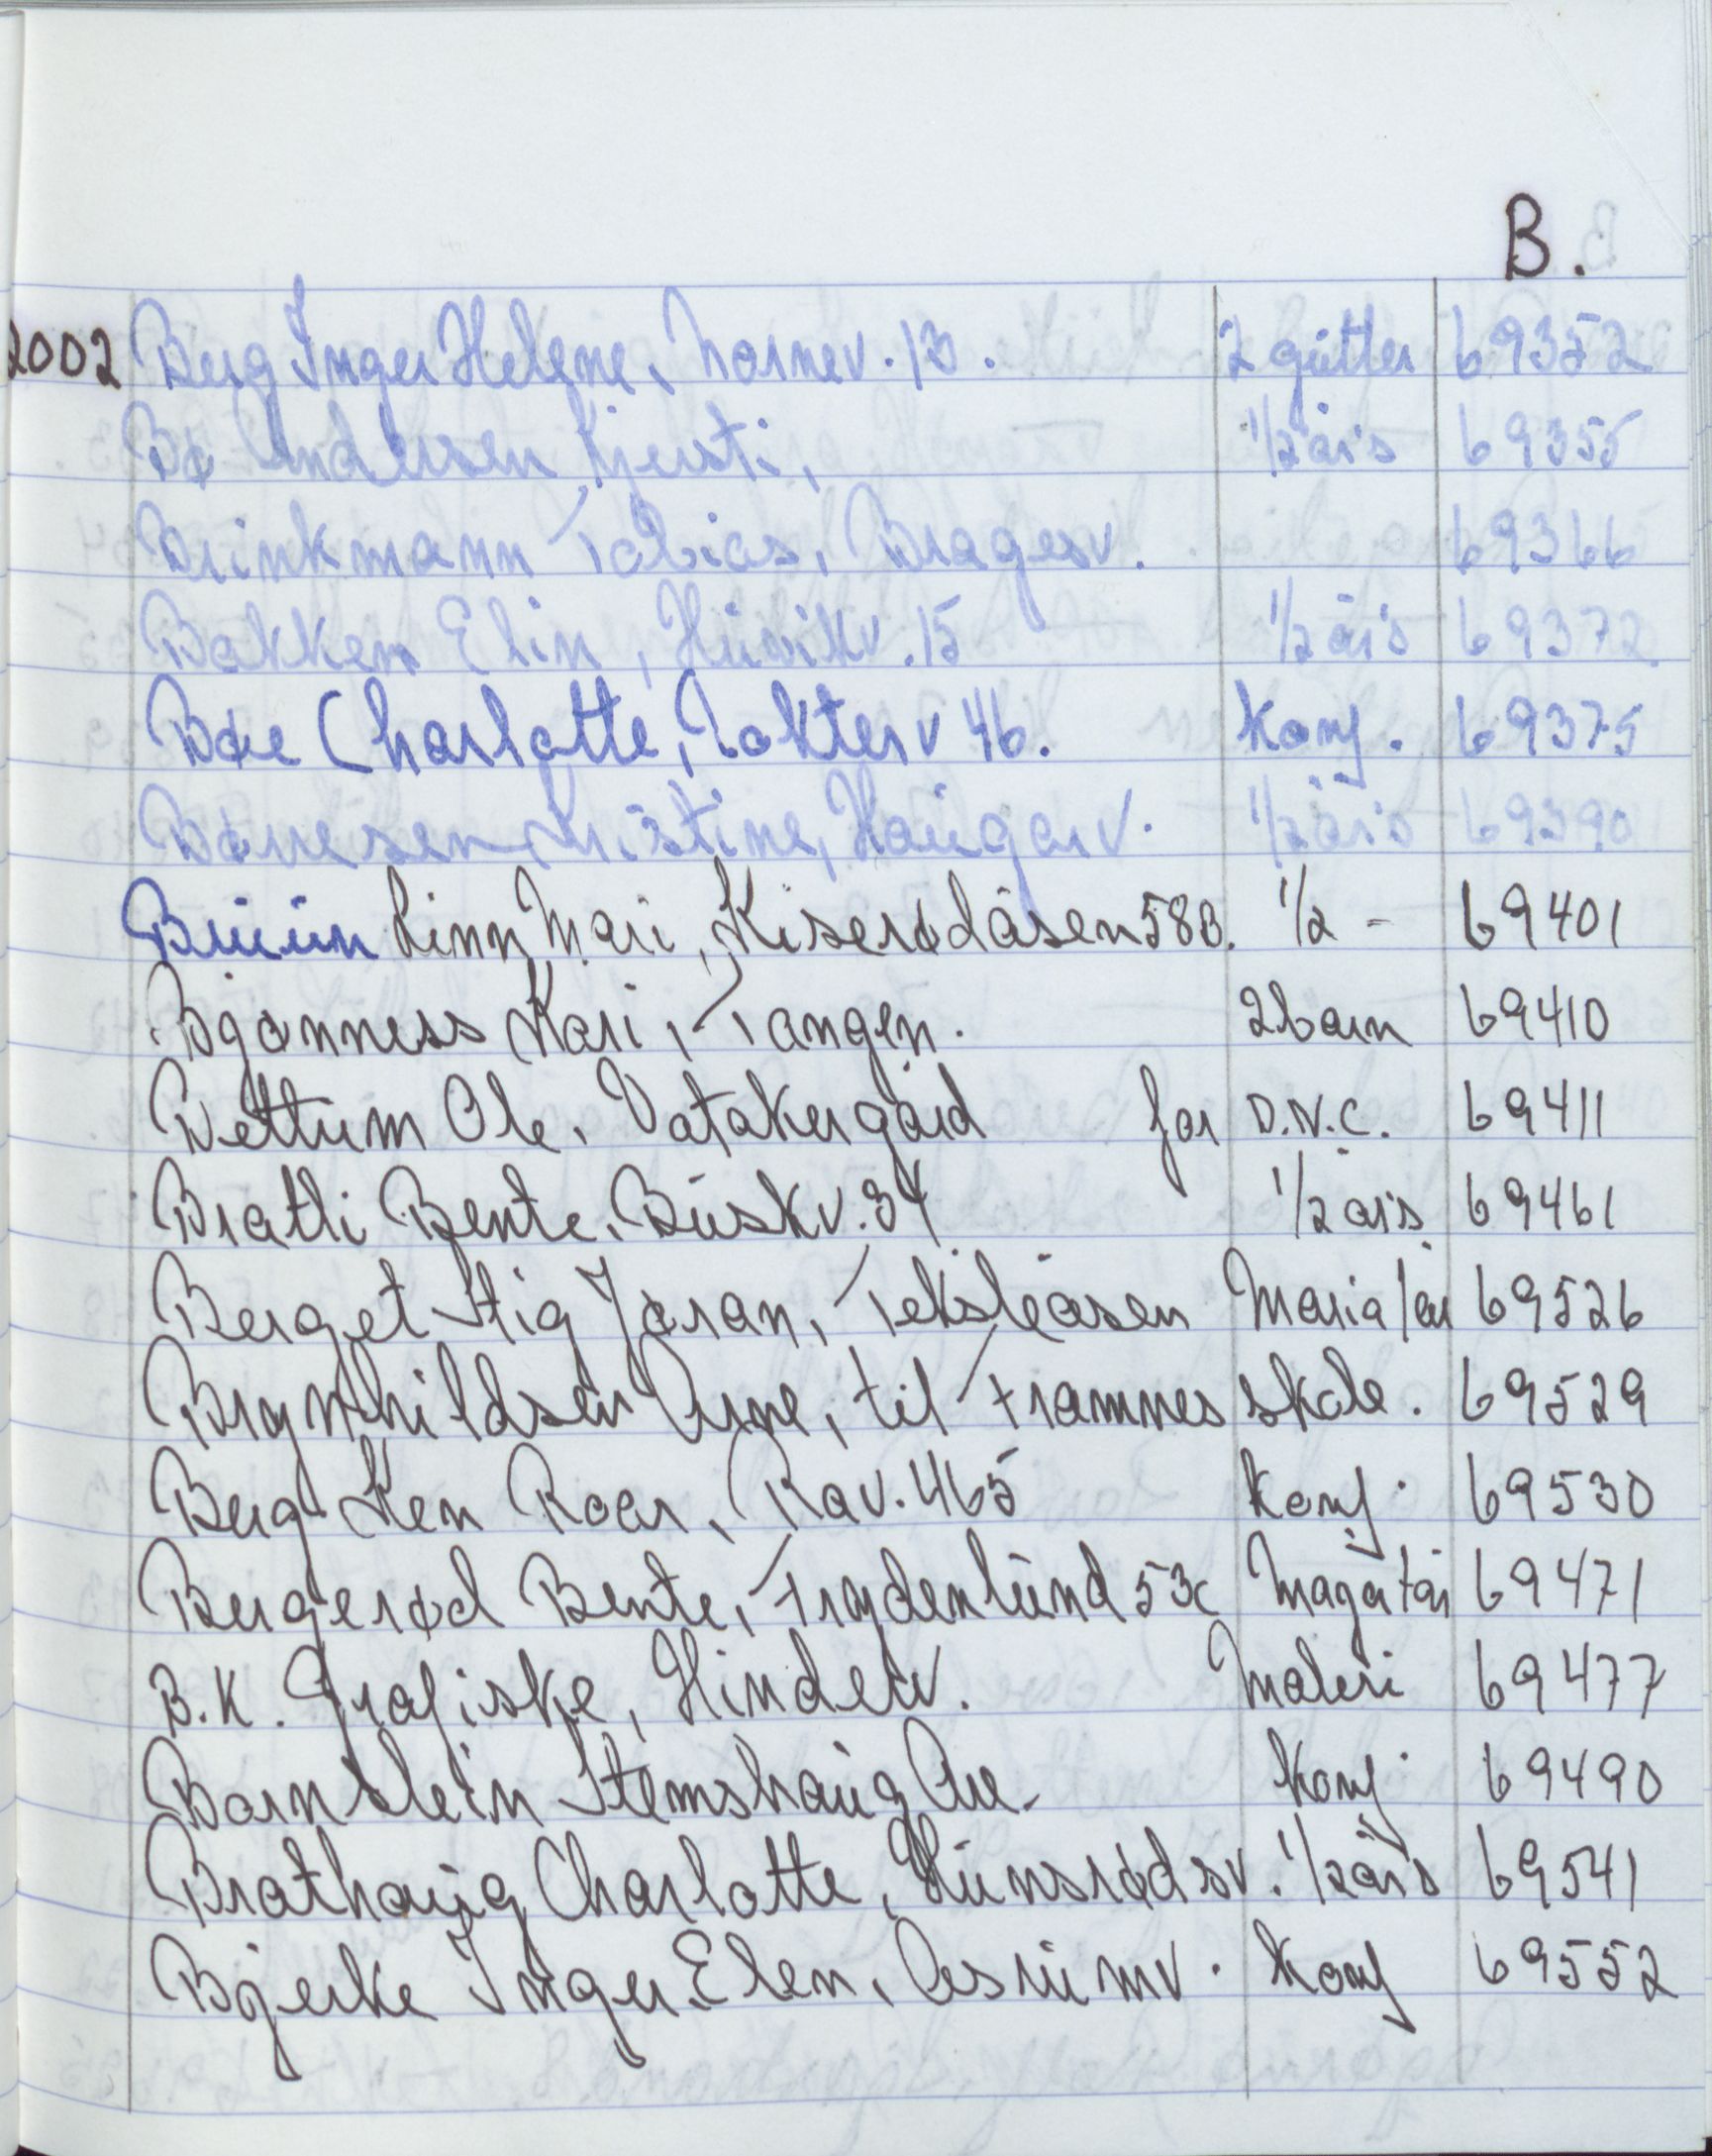 B.
2002 Berg Inger Helene, Nornev. 13. 2 gutter 69352
Bø Andersen Kjersti, 1/2 års 69355
Brinkmann Tobias, Bragesv. 69366
Bakken Elin, Husvikv. 15 1/2 års 69372
Bøe Charlotte, Rokterv 46. konf. 69375
Børresen Kristine, Haugarv. 1/2 års 69390
Bruun Linn Mari, Kiserødåsen 58B. 1/2 - 69401
Bjønness Kari, Tangen. 2 barn 69410
Bettum Ole, Vatakergård for D.N.C. 69411
Bratli Bente, Buskv. 34 1/2 års 69461
Berget Stig Jøran, Teksleåsen Maria 1 år 69526
Brynhildsen Arne, til Framnes skole. 69529
Berg Ken Roar, Rav. 465 konf. 69530
Bergerød Bente, Frydenlund 53c 69471
B.K. Grafiske, Hinderv. Maleri 69477
Barnslein Stemshaug Are. konf. 69490
Brathaug Charlotte, Hunsrødsv. 1/2 års 69541
Bjerke Inger Elen, Asrumv. konf 69552